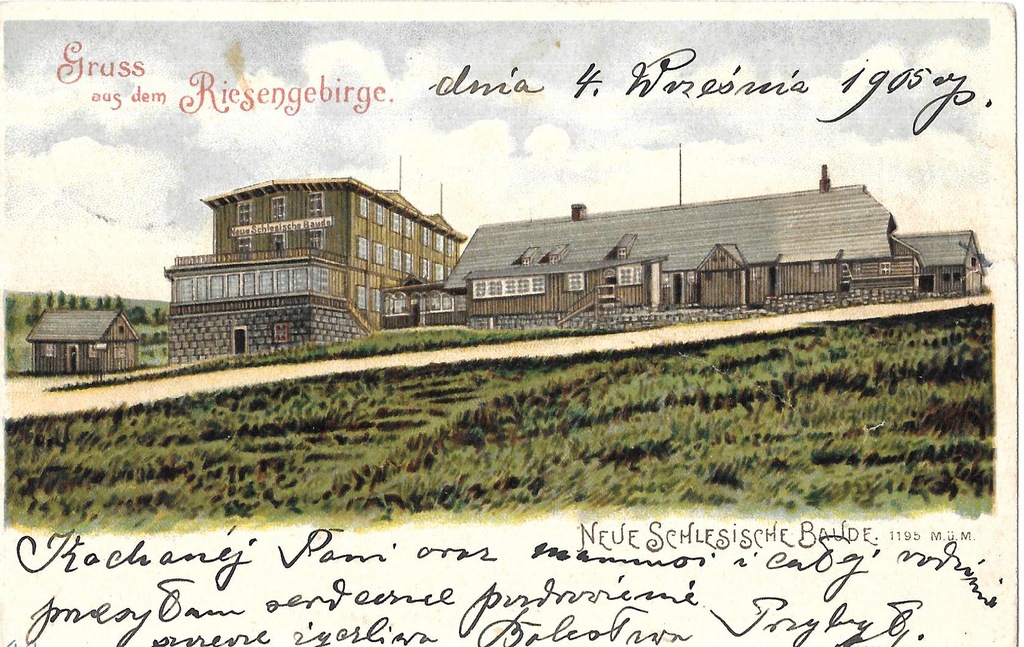 Gruss
aus dem Riesengebirge.
dnia 4. Września 1905 r.
Neue Schlesische Baude
NEUE SCHLESISCHE BAUDE. 1195 M.ü.M.
Kochanéj Pani oraz mamusi i całéj rodzinie
przesyłam serdeczne pozdrowienie
szczerze życzliwa